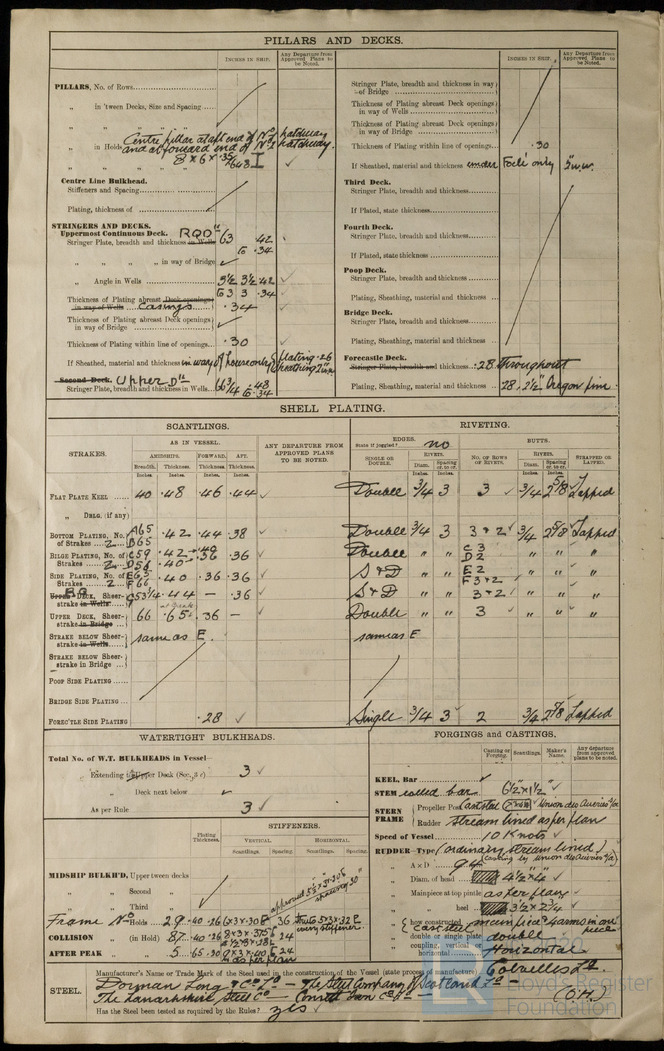 PILLARS AND DECKS.
INCHES IN SHIP.
Any Departure from Approved Plans to be Noted.
PILLARS, No. of Rows
„ in 'tween Decks, Size and Spacing
„ „ „
„ in Holds Centre pillar at aft end of No 1 hatchway
and at forward end of No 2 hatchway.
8 × 6 × .35
Centre Line Bulkhead.
Stiffeners and Spacing
Plating, thickness of
STRINGERS AND DECKS.
Uppermost Continuous Deck. RQD"
Stringer Plate, breadth and thickness in Wells 63 .42
to .34
„ „ „ „ in way of Bridge
„ Angle in Wells 3½ 3½ .42
to 3 3 .34
Thickness of Plating abreast Deck openings
in way of Wells casings .34
Thickness of Plating abreast Deck openings
in way of Bridge
Thickness of Plating within line of openings .30
If Sheathed, material and thickness in way of house only plating .26
sheathing 2"
Second Deck. Upper Dk
Stringer Plate, breadth and thickness in Wells 66¾ .48
to .34
INCHES IN SHIP.
Any Departure from Approved Plans to be Noted.
Stringer Plate, breadth and thickness in way
of Bridge
Thickness of Plating abreast Deck openings
in way of Wells
Thickness of Plating abreast Deck openings
in way of Bridge
Thickness of Plating within line of openings .30
If Sheathed, material and thickness under Focle only
Third Deck.
Stringer Plate, breadth and thickness
If Plated, state thickness
Fourth Deck.
Stringer Plate, breadth and thickness
If Plated, state thickness
Poop Deck.
Stringer Plate, breadth and thickness
Plating, Sheathing, material and thickness
Bridge Deck.
Stringer Plate, breadth and thickness
Plating, Sheathing, material and thickness
Forecastle Deck.
Stringer Plate, breadth and thickness .28 throughout
Plating, Sheathing, material and thickness .28, 2½" Oregon pine
SHELL PLATING.
SCANTLINGS.
RIVETING.
STRAKES.
AS IN VESSEL.
ANY DEPARTURE FROM APPROVED PLANS TO BE NOTED.
EDGES. State if joggled? no
BUTTS.
AMIDSHIPS. FORWARD. AFT.
Breadth. Thickness. Thickness. Thickness.
Inches. Inches. Inches. Inches.
SINGLE OR DOUBLE.
RIVETS.
Diam. Spacing cr. to cr.
NO. OF ROWS OF RIVETS.
RIVETS.
Diam. Spacing cr. to cr.
STRAPPED OR LAPPED.
FLAT PLATE KEEL 40 .48 .46 .44 Double ¾ 3 3 ¾ 2⅝ Lapped
„ DBLG. (if any)
BOTTOM PLATING, No. of Strakes 2 A 65 B 65 .42 .44 .38 Double ¾ 3 3 + 2 ¾ 2⅝ Lapped
BILGE PLATING, No. of Strakes 2 C 59 .42 .40 .36 Double „ „ C 3 „ „ „
D 56 .40 .36 .36 D 2
SIDE PLATING, No. of Strakes 2 E 63 F 66 .40 .36 .36 S & D „ „ E 2 F 3 + 2 „ „ „
UPPER DECK, Sheerstrake in Wells RQ G 53¼ .44 — .36 S & D „ „ 3 + 2 „ „ „
UPPER DECK, Sheerstrake in Bridge 66 .65 .36 — Double „ „ 3 „ „ „
STRAKE BELOW Sheerstrake in Wells same as E. same as E
STRAKE BELOW Sheerstrake in Bridge
POOP SIDE PLATING
BRIDGE SIDE PLATING
FOREC'TLE SIDE PLATING .28 Single ¾ 3 2 ¾ 2⅝ Lapped
WATERTIGHT BULKHEADS.
Total No. of W.T. BULKHEADS in Vessel—
Extending to Upper Deck (Sec. 3 c) 3
„ Deck next below
As per Rule 3
Plating Thickness.
STIFFENERS.
VERTICAL. HORIZONTAL.
Scantlings. Spacing. Scantlings. Spacing.
MIDSHIP BULK'D, Upper tween decks
„ „ Second „
„ „ Third „
Frame No Holds 29 .40 .26 6 × 3 × .30 36
COLLISION „ (in Hold) 87 .40 .26 24
AFTER PEAK „ „ 5 .65 .30 24
as per plan
FORGINGS and CASTINGS.
Casting or Forging. Scantlings. Maker's Name. Any departure from approved plans to be noted.
KEEL, Bar
STEM rolled bar 6½" × 1½"
STERN FRAME Propeller Post Cast steel Union des Acieries S/A
„ Rudder „ stream lined as per plan
Speed of Vessel 10 Knots
RUDDER—Type (ordinary stream lined)
„ A x D 94 (casting by Union des Acieries S/A)
„ Diam. of head 4½" × 4"
„ Mainpiece at top pintle as per plan
„ „ heel 3½ × 2¾
„ how constructed cast steel main piece & arms in one piece
„ double or single plate double
„ coupling, vertical or horizontal Horizontal
STEEL. Manufacturer's Name or Trade Mark of the Steel used in the construction of the Vessel (state process of manufacture) Colvilles Ld.
Dorman Long & Co Ld — The Steel Company of Scotland Ld —
The Lanarkshire Steel Co — Consett Iron Co Ld — (O.H.)
Has the Steel been tested as required by the Rules? yes
Lloyd's Register
Foundation